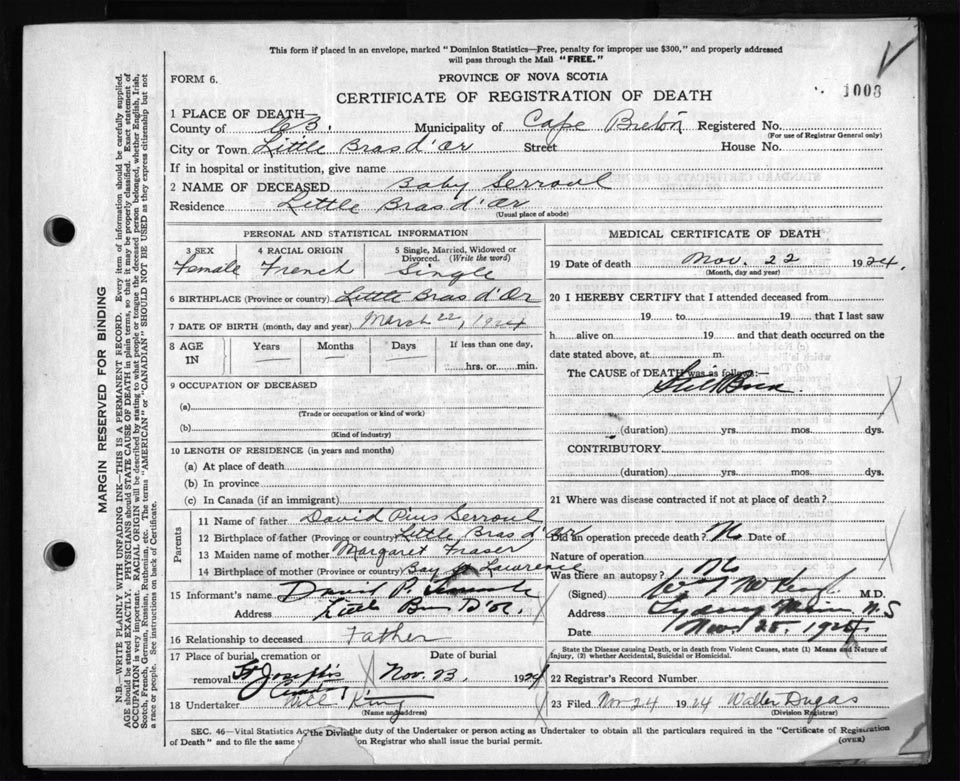 This form if placed in an envelope, marked "Dominion Statistics—Free, penalty for improper use $300," and properly addressed
will pass through the Mail "FREE."
FORM 6.
PROVINCE OF NOVA SCOTIA
1003
CERTIFICATE OF REGISTRATION OF DEATH
1 PLACE OF DEATH—
County of C.B. Municipality of Cape Breton Registered No.
(For use of Registrar General only)
City or Town Little Bras d'Or Street House No.
If in hospital or institution, give name
2 NAME OF DECEASED Baby Serroul
Residence Little Bras d'Or
(Usual place of abode)
PERSONAL AND STATISTICAL INFORMATION
3 SEX 4 RACIAL ORIGIN 5 Single, Married, Widowed or Divorced. (Write the word)
Female French Single
6 BIRTHPLACE (Province or country) Little Bras d'Or
7 DATE OF BIRTH (month, day and year) March 22, 1924
8 AGE IN Years Months Days If less than one day,
hrs. or min.
9 OCCUPATION OF DECEASED
(a)
(Trade or occupation or kind of work)
(b)
(Kind of industry)
10 LENGTH OF RESIDENCE (in years and months)
(a) At place of death
(b) In province
(c) In Canada (if an immigrant)
Parents
11 Name of father David Pius Serroul
12 Birthplace of father (Province or country) Little Bras d'Or
13 Maiden name of mother Margaret Fraser
14 Birthplace of mother (Province or country) Bay St Lawrence
15 Informant's name David P.
Address Little Bras D'Or.
16 Relationship to deceased Father
17 Place of burial, cremation or Date of burial
removal St Joseph's Nov. 23. 1924
18 Undertaker Will King
(Name and address)
MEDICAL CERTIFICATE OF DEATH
19 Date of death Nov. 22 1924.
(Month, day and year)
20 I HEREBY CERTIFY that I attended deceased from
19 to 19 that I last saw
h alive on 19 and that death occurred on the
date stated above, at m.
The CAUSE of DEATH was as follows:—
Still Born
(duration) yrs. mos. dys.
CONTRIBUTORY
(duration) yrs. mos. dys.
21 Where was disease contracted if not at place of death?
Did an operation precede death? No Date of
Nature of operation
Was there an autopsy? No
(Signed) M.D.
Address Sydney Mines N.S
Date Nov. 25. 1924
State the Disease causing Death, or in death from Violent Causes, state (1) Means and Nature of
Injury, (2) whether Accidental, Suicidal or Homicidal.
22 Registrar's Record Number
23 Filed Nov 24 1924 Walter Dugas
(Division Registrar)
SEC. 46—Vital Statistics Act the Division the duty of the Undertaker or person acting as Undertaker to obtain all the particulars required in the "Certificate of Registration
of Death" and to file the same Registrar who shall issue the burial permit. (OVER)
MARGIN RESERVED FOR BINDING
N.B.—WRITE PLAINLY WITH UNFADING INK—THIS IS A PERMANENT RECORD. Every item of information should be carefully supplied.
AGE should be stated EXACTLY. PHYSICIANS should STATE CAUSE OF DEATH in plain terms, so that it may be properly classified. Exact statement of
OCCUPATION is very important. RACIAL ORIGIN will be described by stating to what people or tongue the deceased person belonged, whether English, Irish,
Scotch, French, German, Russian, Ruthenian, etc. The terms "AMERICAN" or "CANADIAN" SHOULD NOT BE USED as they express citizenship but not
a race or people. See instructions on back of Certificate.